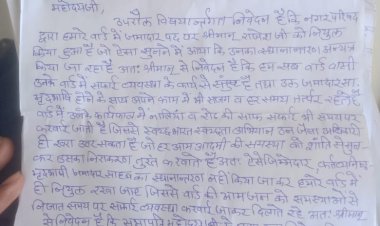 महोदयजी,
उपरोक्त विषयान्तर्गत निवेदन है कि नगर परिषद
द्वारा हमारे वार्ड में जमादार पद पर श्रीमान् राजेश जी को नियुक्त
किया हुआ है जो ऐसा सुनने में आया कि उनका स्थानान्तरण अन्यत्र
किया जा रहा है अतः श्रीमान् से निवेदन है कि हम सब वार्ड वासी
उनके वार्ड में सफाई व्यवस्था के कार्य से संतुष्ट हैं तथा उक्त जमादार
मृदुभाषि होने के साथ अपने काम में भी सजग व हर समय तत्पर रहते हैं
वार्ड में उनके कार्यकाल में नालियों व रोड की साफ सफाई भी समय पर
करवाई जाती है जिससे स्वच्छ भारत स्वच्छता अभियान उन जैसा अधिकारी
ही खरा उतर सकता जो हर आम आदमी की समस्या को शांति से सुन
कर उसका निराकरण तुरंत करवाते हैं अतः ऐसे जिम्मेदार, कर्तव्यनिष्ठ
मृदुभाषी जमादार साहब का स्थानान्तरण नहीं किया जाकर हमारे वार्ड में
ही नियुक्त रखा जाह जिससे वार्ड की आम जन को समस्याओं से
निजात समय पर सफाई व्यवस्था करवाई जाकर दिलाते रहे अतः श्रीमान
से निवेदन है कि